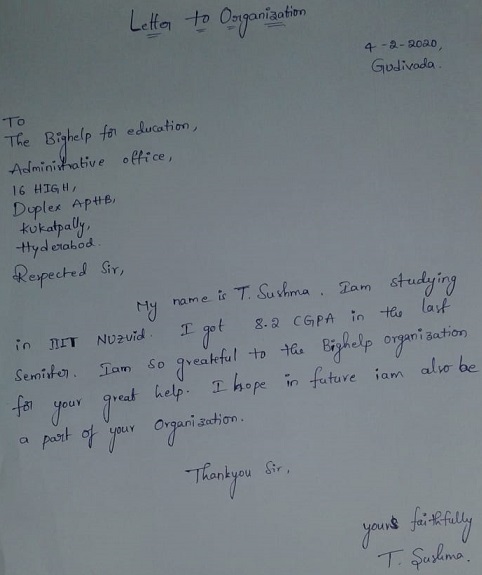 Letter to Organization
4-2-2020,
Gudivada.
To
The Bighelp for education,
Administrative office,
16 HIGH,
Duplex APHB,
Kukatpally,
Hyderabad.
Respected Sir,
My name is T. Sushma. Iam studying
in IIIT Nuzvid. I got 8.2 CGPA in the last
Semister. Iam so greateful to the Bighelp organization
for your great help. I hope in future iam also be
a part of your Organization.
Thankyou Sir,
yours faithfully
T. Sushma.